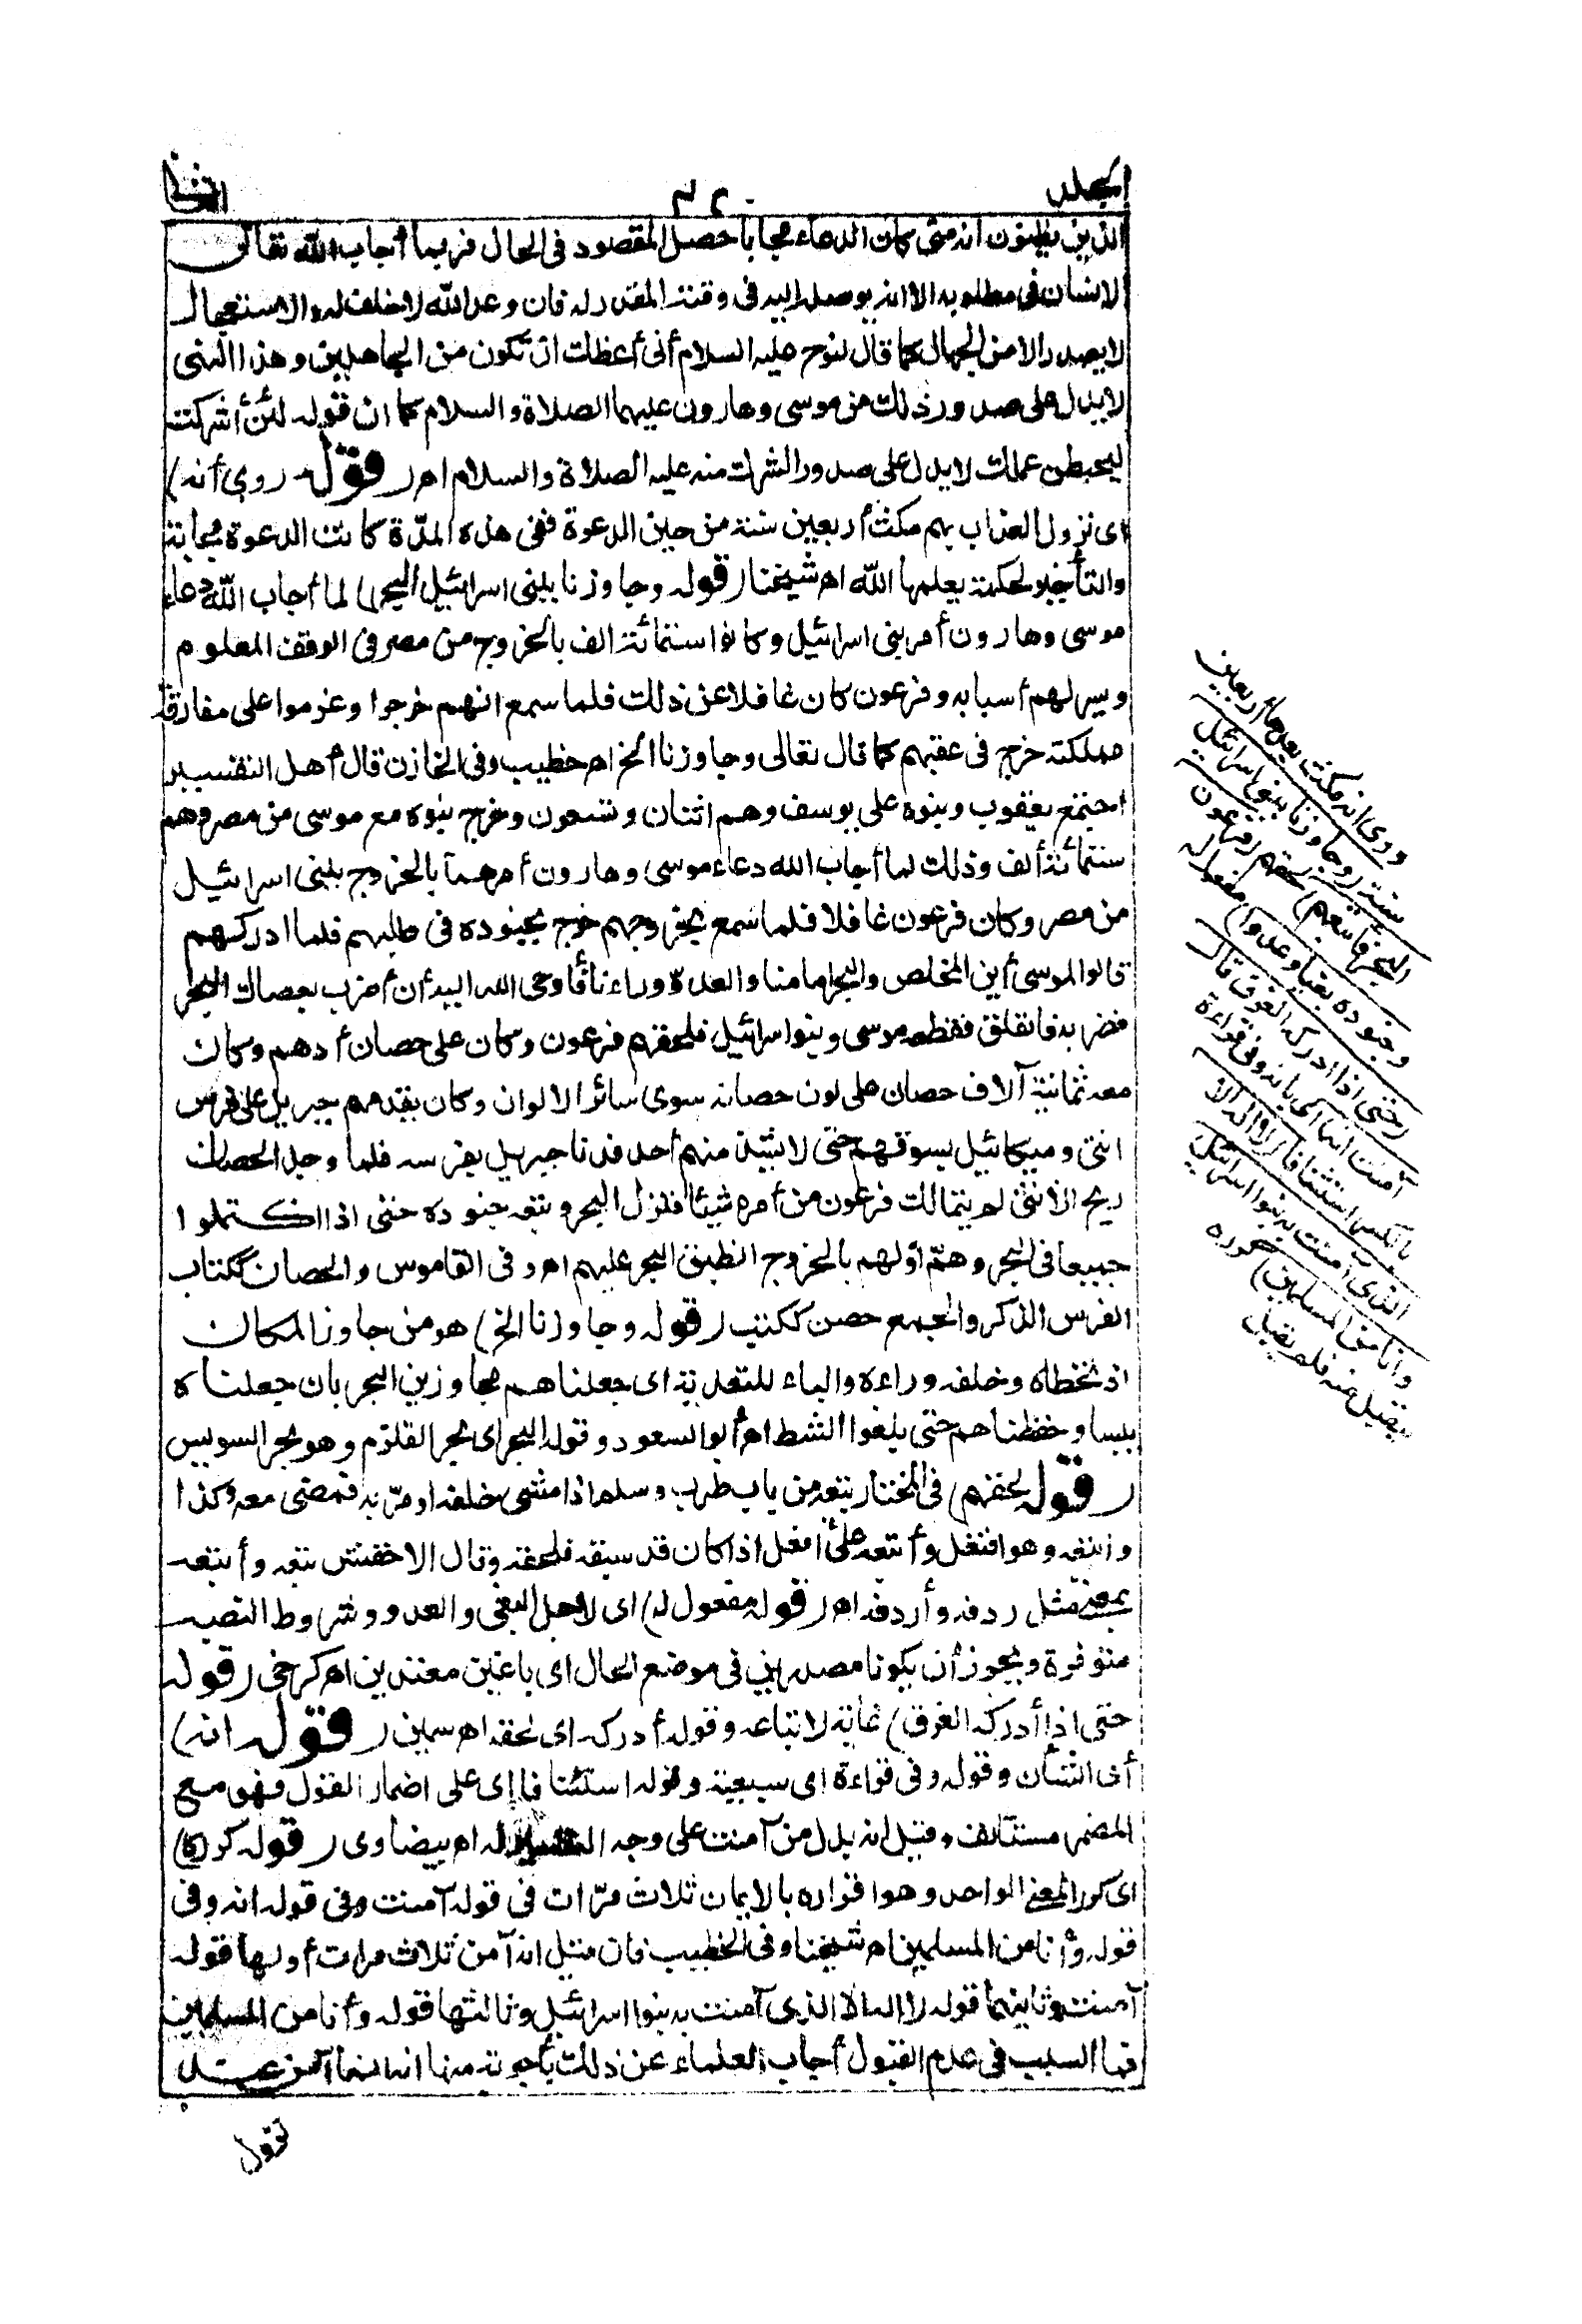 المجلد
٣٢٠
الثانى
الذين يظنون انه متى كان الدعاء مجابا حصل المقصود فى الحال فربما أجاب الله تعالى
الانسان فى مطلوبه الا انه يوصله اليه فى وقته المقدر له فان وعد الله لا خلف له والاستعجال
لا يصدر الا من الجهال كما قال لنوح عليه السلام أنى أعظك ان تكون من الجاهلين وهذا النهى
لا يدل على صدور ذلك من موسى وهارون عليهما الصلاة والسلام كما ان قوله لئن أشركت
ليحبطن عملك لا يدل على صدور الشرك منه عليه الصلاة والسلام اهـ (قوله روى أنه)
اى نزول العذاب بهم مكث أربعين سنة من حين الدعوة ففى هذه المدّة كانت الدعوة مجابة
والتأخير لحكمة يعلمها الله اهـ شيخنا (قوله وجاوزنا ببنى اسرائيل البحر) لما أجاب الله دعاء
موسى وهارون أمر بنى اسرائيل وكانوا ستمائة الف بالخروج من مصر فى الوقت المعلوم
ويسر لهم أسبابه وفرعون كان غافلا عن ذلك فلما سمع انهم خرجوا وعزموا على مفارقة
مملكته خرج فى عقبهم كما قال تعالى وجاوزنا الخ اهـ خطيب وفى الخازن قال أهل التفسير
اجتمع يعقوب وبنوه على يوسف وهم اثنان وتسعون وخرج بنوه مع موسى من مصر وهم
ستمائة ألف وذلك لما أجاب الله دعاء موسى وهارون أمرهما بالخروج ببنى اسرائيل
من مصر وكان فرعون غافلا فلما سمع بخروجهم خرج بجنوده فى طلبهم فلما ادركهم
قالوا لموسى أين المخلص والبحر امامنا والعدو وراءنا فأوحى الله اليه أن أضرب بعصاك البحر
فضربه فانفلق فقطعه موسى وبنوا اسرائيل فلحقهم فرعون وكان على حصان أدهم وكان
معه ثمانية آلاف حصان على لون حصانه سوى سائر الالوان وكان يقدمهم جبريل على فرس
انثى وميكائيل يسوقهم حتى لا يشذ منهم أحد فدنا جبريل بفرسه فلما وجد الحصان
ريح الانثى لم يتمالك فرعون من أمره شيئا فنزل البحر وتبعه جنوده حتى اذا اكتملوا
جميعا فى البحر وهمّ أولهم بالخروج انطبق البحر عليهم اهـ وفى القاموس والحصان ككتاب
الفرس الذكر والجمع حصن ككتب (قوله وجاوزنا الخ) هو من جاوز المكان
اذ تخطاه وخلفه وراءه والباء للتعدية اى جعلناهم مجاوزين البحر بان جعلناه
يبسا وحفظناهم حتى بلغوا الشط اهـ أبو السعود وقوله البحر اى بحر القلزم وهو بحر السويس
(قوله لحقهم) فى المختار تبعه من باب طرب وسلم اذا مشى خلفه او مرّ به فمضى معه وكذا
واتبعه وهو افتعل وأتبعه على أفعل اذا كان قد سبقه فلحقه وقال الاخفش تبعه وأتبعه
بمعنى مثل ردفه وأردفه اهـ (قوله مفعول له) اى لاجل البغى والعدو وشروط النصب
متوفرة ويجوز أن يكونا مصدرين فى موضع الحال اى باغين معتدين اهـ كرخى (قوله
حتى اذا أدركه الغرق) غاية لاتباعه وقوله أدركه اى لحقه اهـ سمين (قوله انه)
أى الشأن وقوله وفى قراءة اى سبعية وقوله استئنافا اى على اضمار القول فهو مع
المضمر مستأنف وقيل انه بدل من آمنت على وجه التفسير له اهـ بيضاوى (قوله كرره)
اى كرر المعنى الواحد وهو اقراره بالايمان ثلاث مرّات فى قوله آمنت وفى قوله انه وفى
قوله وأنا من المسلمين اهـ شيخنا وفى الخطيب فان قيل انه آمن ثلاث مرات أولها قوله
آمنت وثانيها قوله لا اله الا الذى آمنت به بنوا اسرائيل وثالثها قوله وأنا من المسلمين
فما السبب فى عدم القبول أجاب العلماء عن ذلك بأجوبة منها انه انما آمن عند
نزول
روى انه مكث بعدها أربعين
سنة (وجاوزنا ببنى اسرائيل
البحر فاتبعهم) لحقهم (فرعون
وجنوده بغيا وعدوا) مفعول له
(حتى اذا ادركه الغرق قال
آمنت انه) اى بانه وفى قراءة
بالكسر استئنافا (لا اله الا
الذى آمنت به بنوا اسرائيل
وانا من المسلمين) كرره
ليقبل منه فلم يقبل